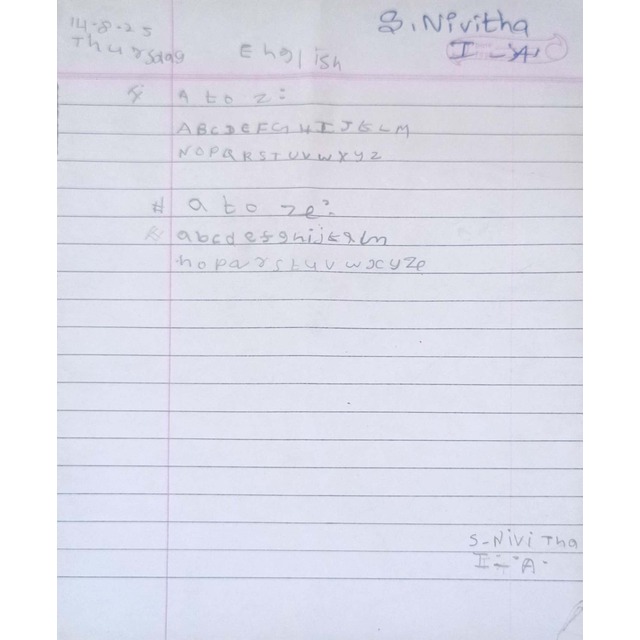 14-8-25
S. Nivitha
Thursday
English
I - 'A'
A to Z:
ABCDEFGHIJKLM
NOPQRSTUVWXYZ
# a to z:
abcdefghijklm
nopqrstuvwxyz
S-Nivi Tha
I - "A"